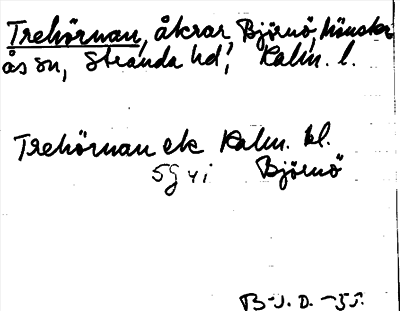 Trehörnan, åkrar Björnö, Mönster
ås sn, Stranda hd, Kalm. l.
Trehörnan ek Kalm. kl.
5G 4i Björnö
B-J. D. -55.